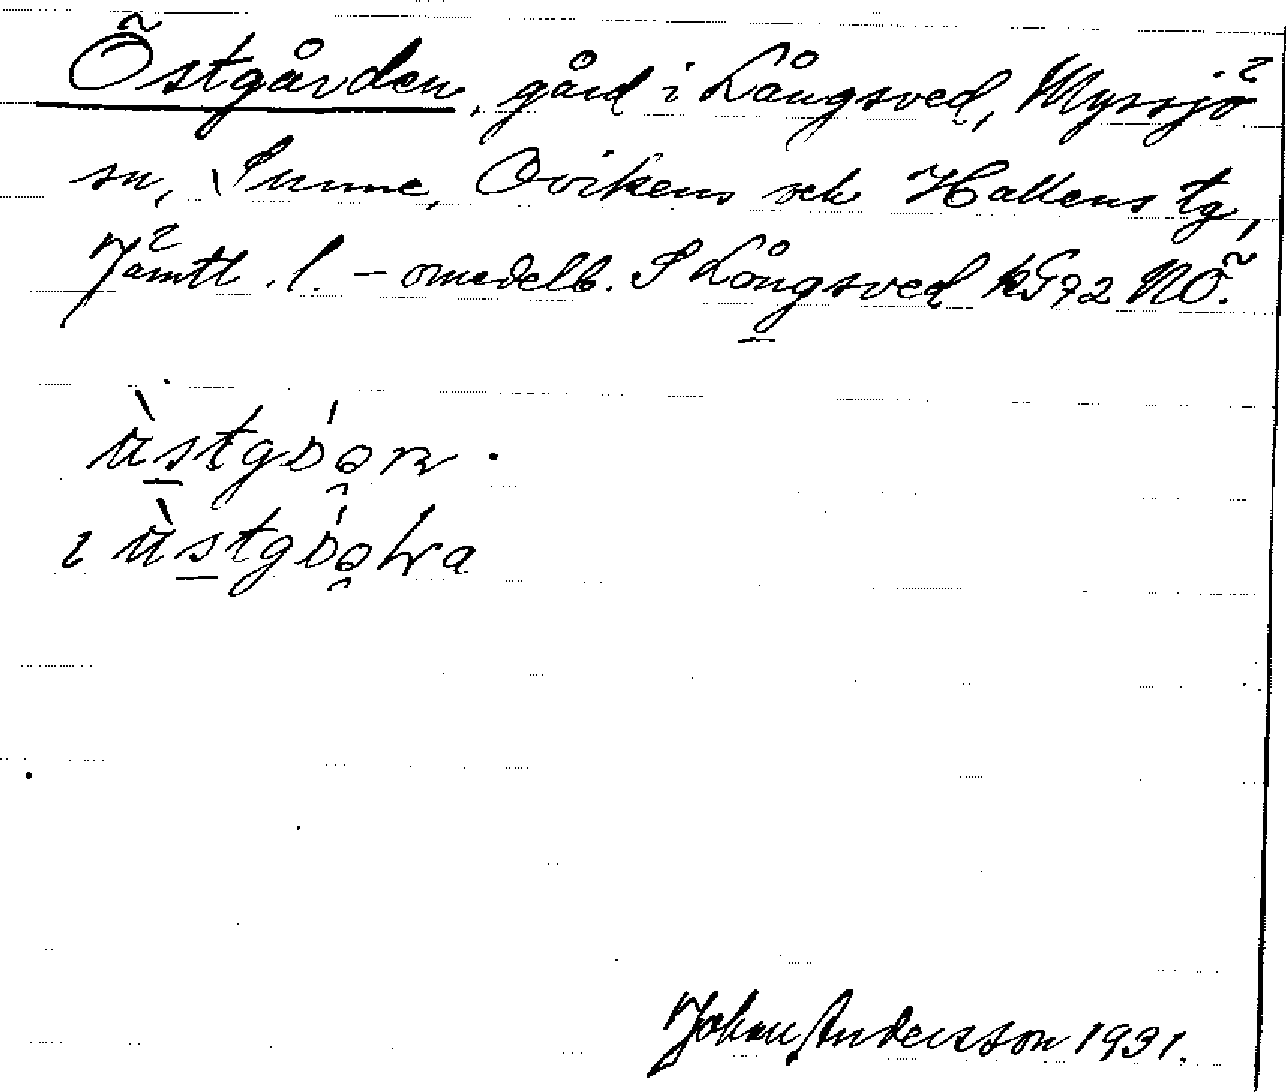 Östgården, gård i Långsved, Myssjö
sn, Sunne, Ovikens och Hallens tg,
Jämtl. l. – omedelb. S Långsved kG72 NÖ.
Johan Andersson 1931.